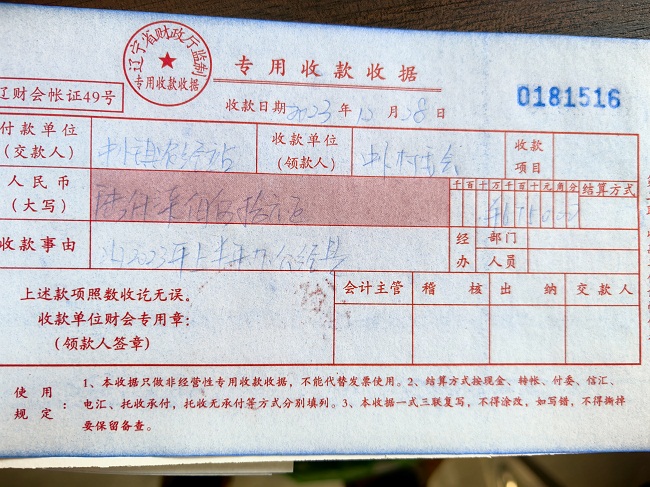 辽宁省财政厅监制
专用收款收据
专用收款收据
辽财会帐证49号
收款日期 2023 年 12 月 28 日
0181516
付款单位
(交款人)
收款单位
(领款人)
收款
项目
人民币
(大写)
陆仟柒佰伍拾元正
千百十万千百十元角分
¥675000
结算方式
收款事由
2023年上半年办公经费
经办
部门
人员
上述款项照数收讫无误。
收款单位财会专用章:
(领款人签章)
会计主管
稽核
出纳
交款人
使用规定:
1、本收据只做非经营性专用收款收据,不能代替发票使用。2、结算方式按现金、转帐、付委、信汇、
电汇、托收承付,托收无承付等方式分别填列。3、本收据一式三联复写,不得涂改,如写错,不得撕掉
要保留备查。